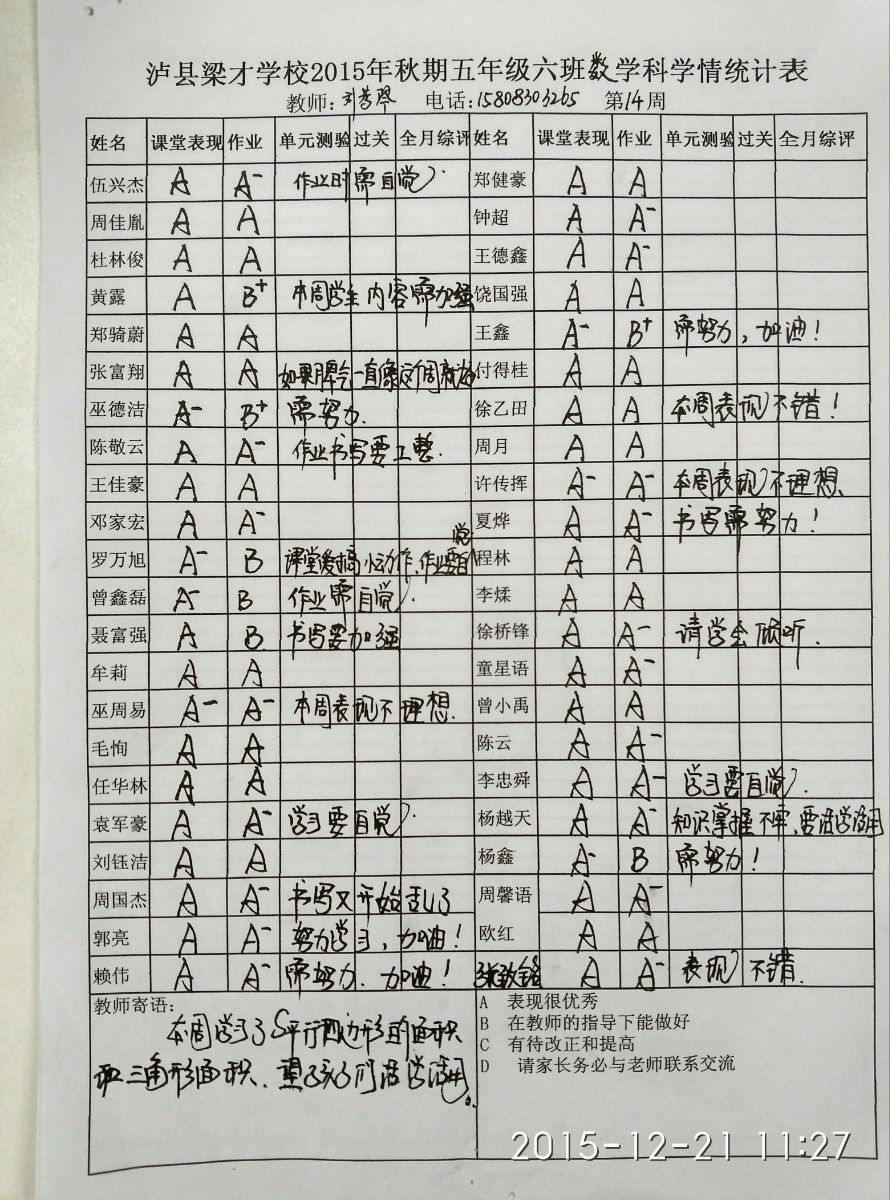 泸县梁才学校2015年秋期五年级六班数学科学情统计表
教师: 电话:15808303265 第14周
姓名 课堂表现 作业 单元测验 过关 全月综评 姓名 课堂表现 作业 单元测验 过关 全月综评
伍兴杰 A A⁻ 作业时需自觉 郑健豪 A A
周佳胤 A A 钟超 A A⁻
杜林俊 A A 王德鑫 A A⁻
黄露 A B⁺ 本周学生内容需加强 饶国强 A A
郑骑蔚 A A 王鑫 A⁻ B⁺ 需努力,加油!
张富翔 A A 如果脾气一直像这周就好 付得桂 A A
巫德洁 A⁻ B⁺ 需努力. 徐乙田 A A 本周表现不错!
陈敬云 A A⁻ 作业书写要工整. 周月 A A
王佳豪 A A 许传挥 A⁻ A⁻ 本周表现不理想、
邓家宏 A A⁻ 夏烨 A A⁻ 书写需努力!
罗万旭 A⁻ B 课堂爱搞小动作、作业要自觉 程林 A A
曾鑫磊 A⁻ B 作业需自觉. 李煣 A A
聂富强 A B 书写要加强 徐桥锋 A A⁻ 请学会倾听.
牟莉 A A 童星语 A A⁻
巫周易 A⁻ A⁻ 本周表现不理想. 曾小禹 A A
毛恂 A A 陈云 A A⁻
任华林 A A 李忠舜 A A⁻ 学习要自觉.
袁军豪 A A⁻ 学习要自觉. 杨越天 A A⁻ 知识掌握不牢、要活学活用
刘钰洁 A A 杨鑫 A⁻ B 需努力!
周国杰 A A⁻ 书写又开始乱了 周馨语 A A⁻
郭亮 A A⁻ 努力学习,加油! 欧红 A A
赖伟 A A⁻ 需努力.加油! A A⁻ 表现不错.
教师寄语:
本周学习了平行四边形的面积
和三角形面积.望孩子们活学活用。
A 表现很优秀
B 在教师的指导下能做好
C 有待改正和提高
D 请家长务必与老师联系交流
2015-12-21 11:27